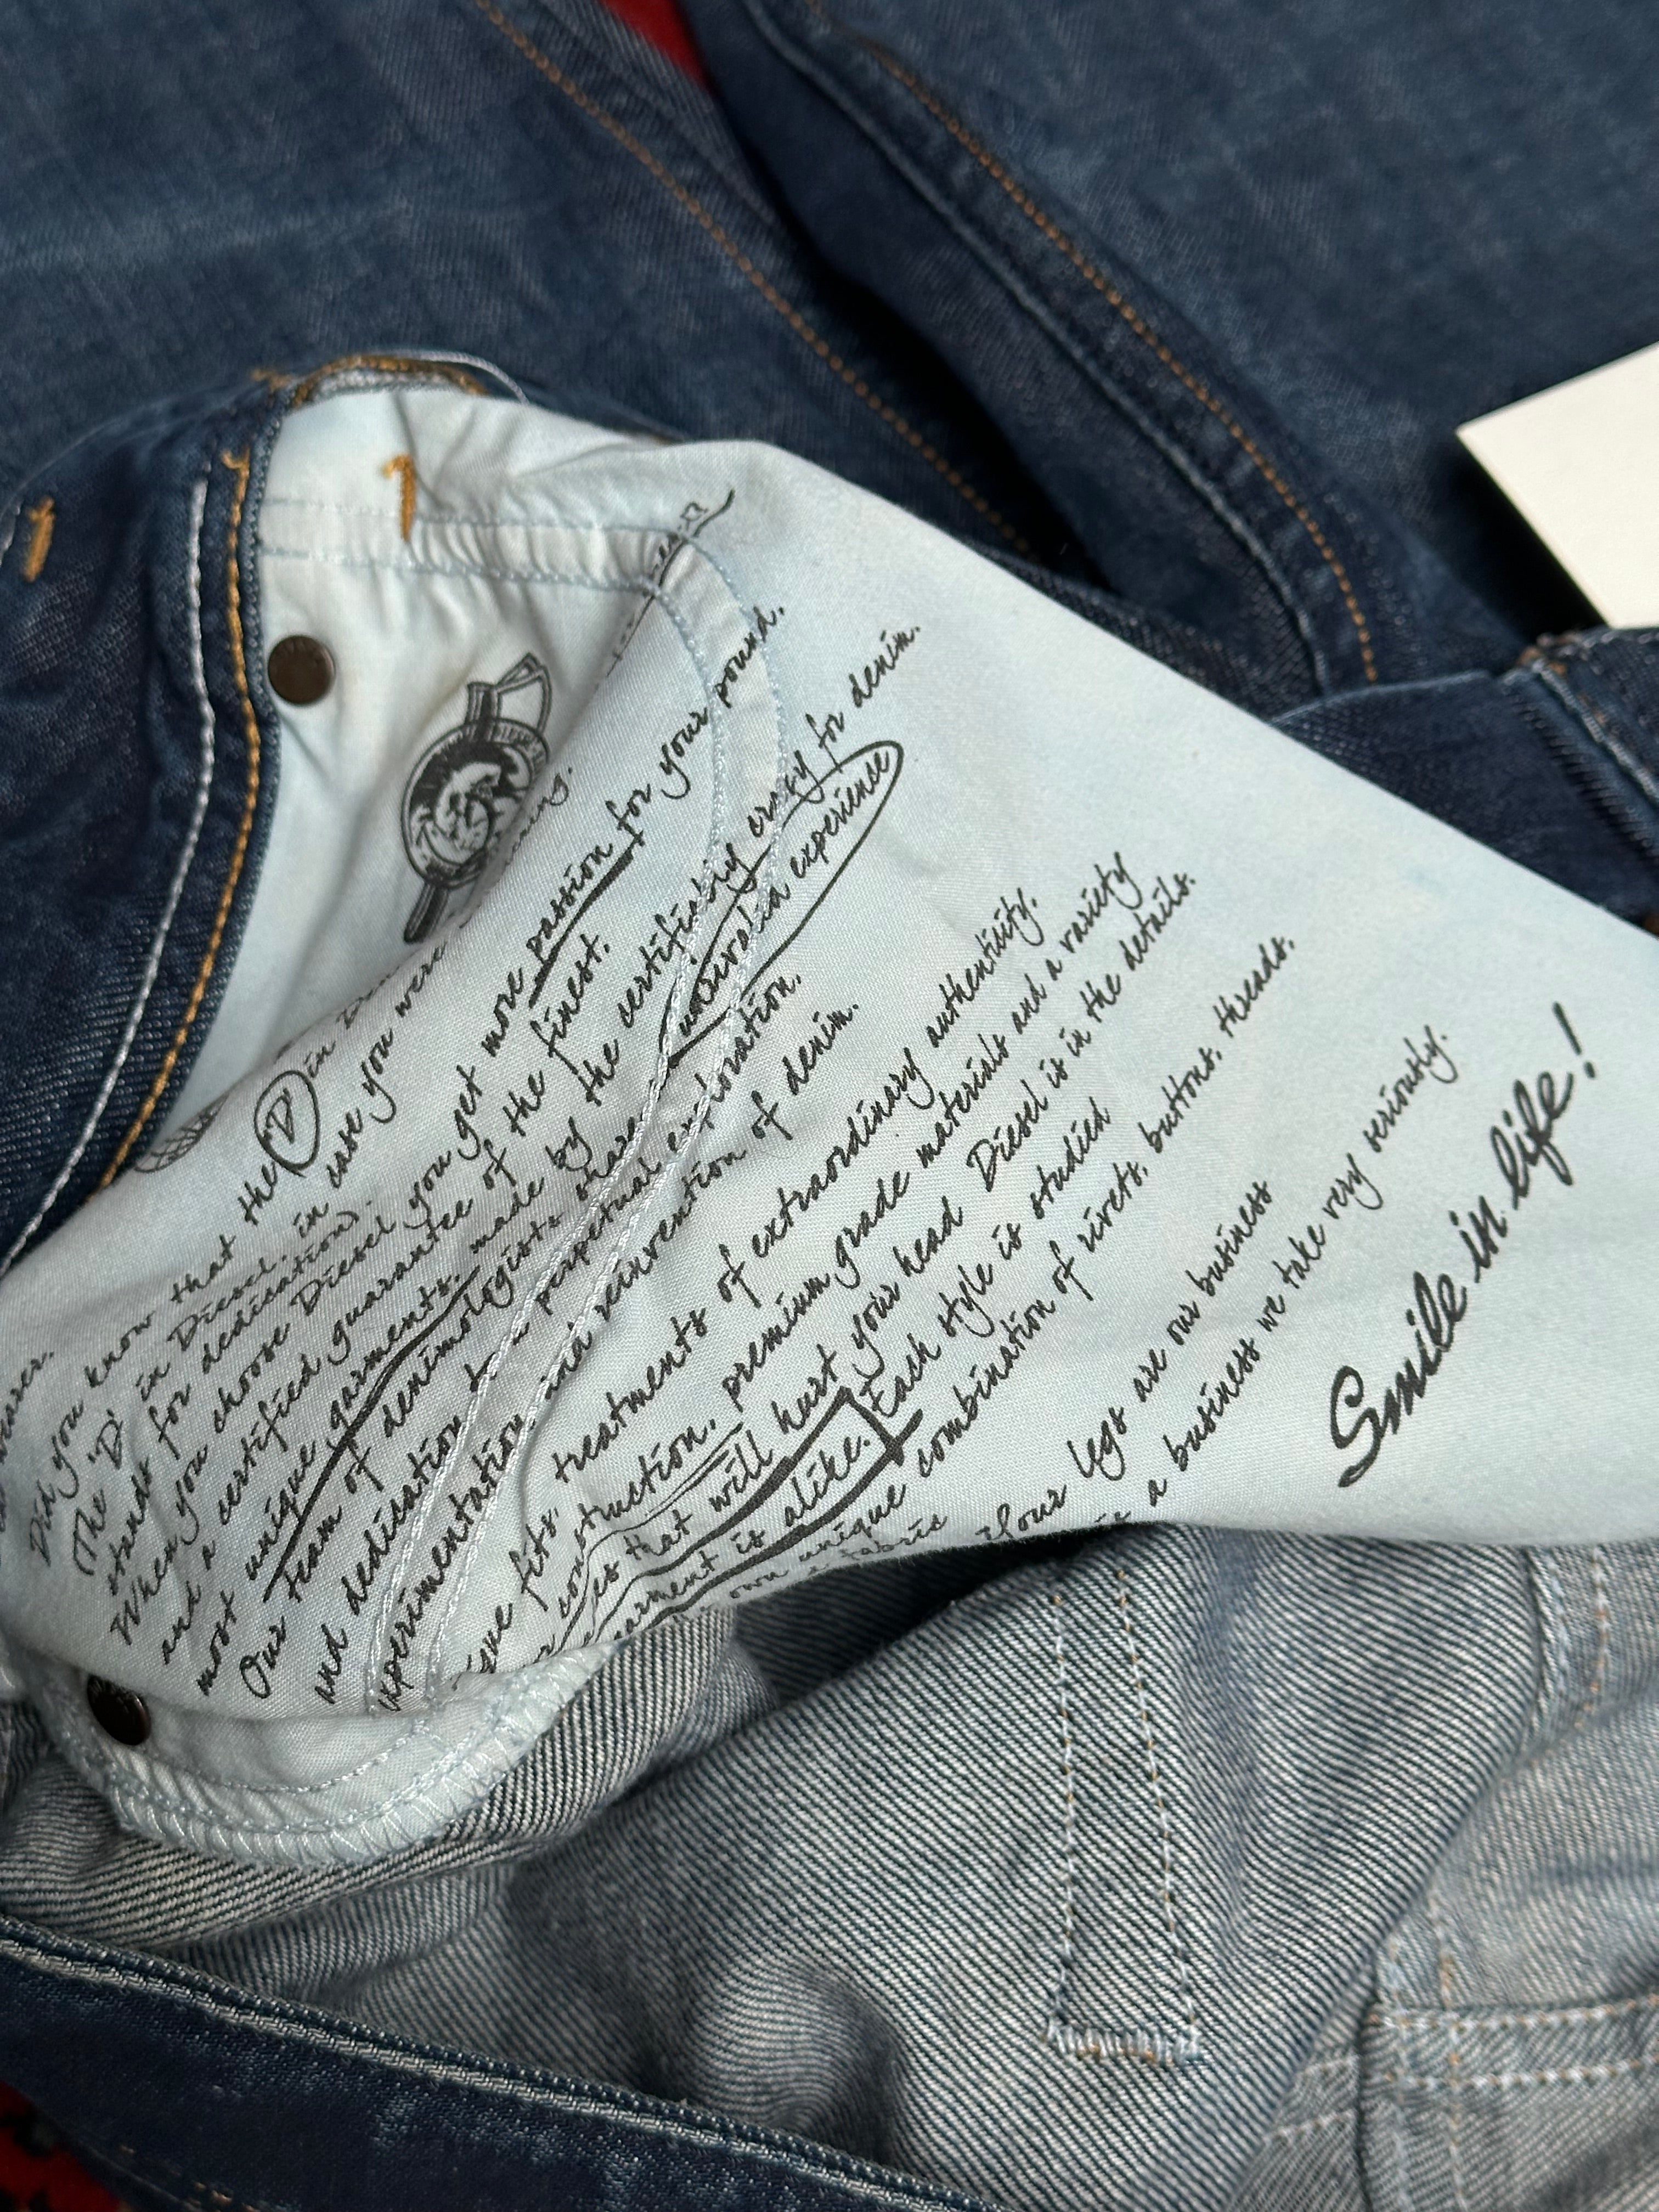 wearer.
Did you know that the 'D' in
The 'D' in Diesel, in case you were
stands for dedication.
When you choose Diesel you get more passion for your pound.
and a certified guarantee of the finest.
most unique garments. made by the certifiably crazy for denim.
Our team of denimologists share unrivaled experience
and dedication to perpetual exploration.
experimentation and reinvention of denim.
fits, treatments of extraordinary authenticity.
construction, premium grade materials and a variety
that will hurt your head Diesel is in the details.
garment is alike. Each style is studied
own unique combination of rivets, buttons, threads.
fabric
Your legs are our business
a business we take very seriously.
Smile in life!